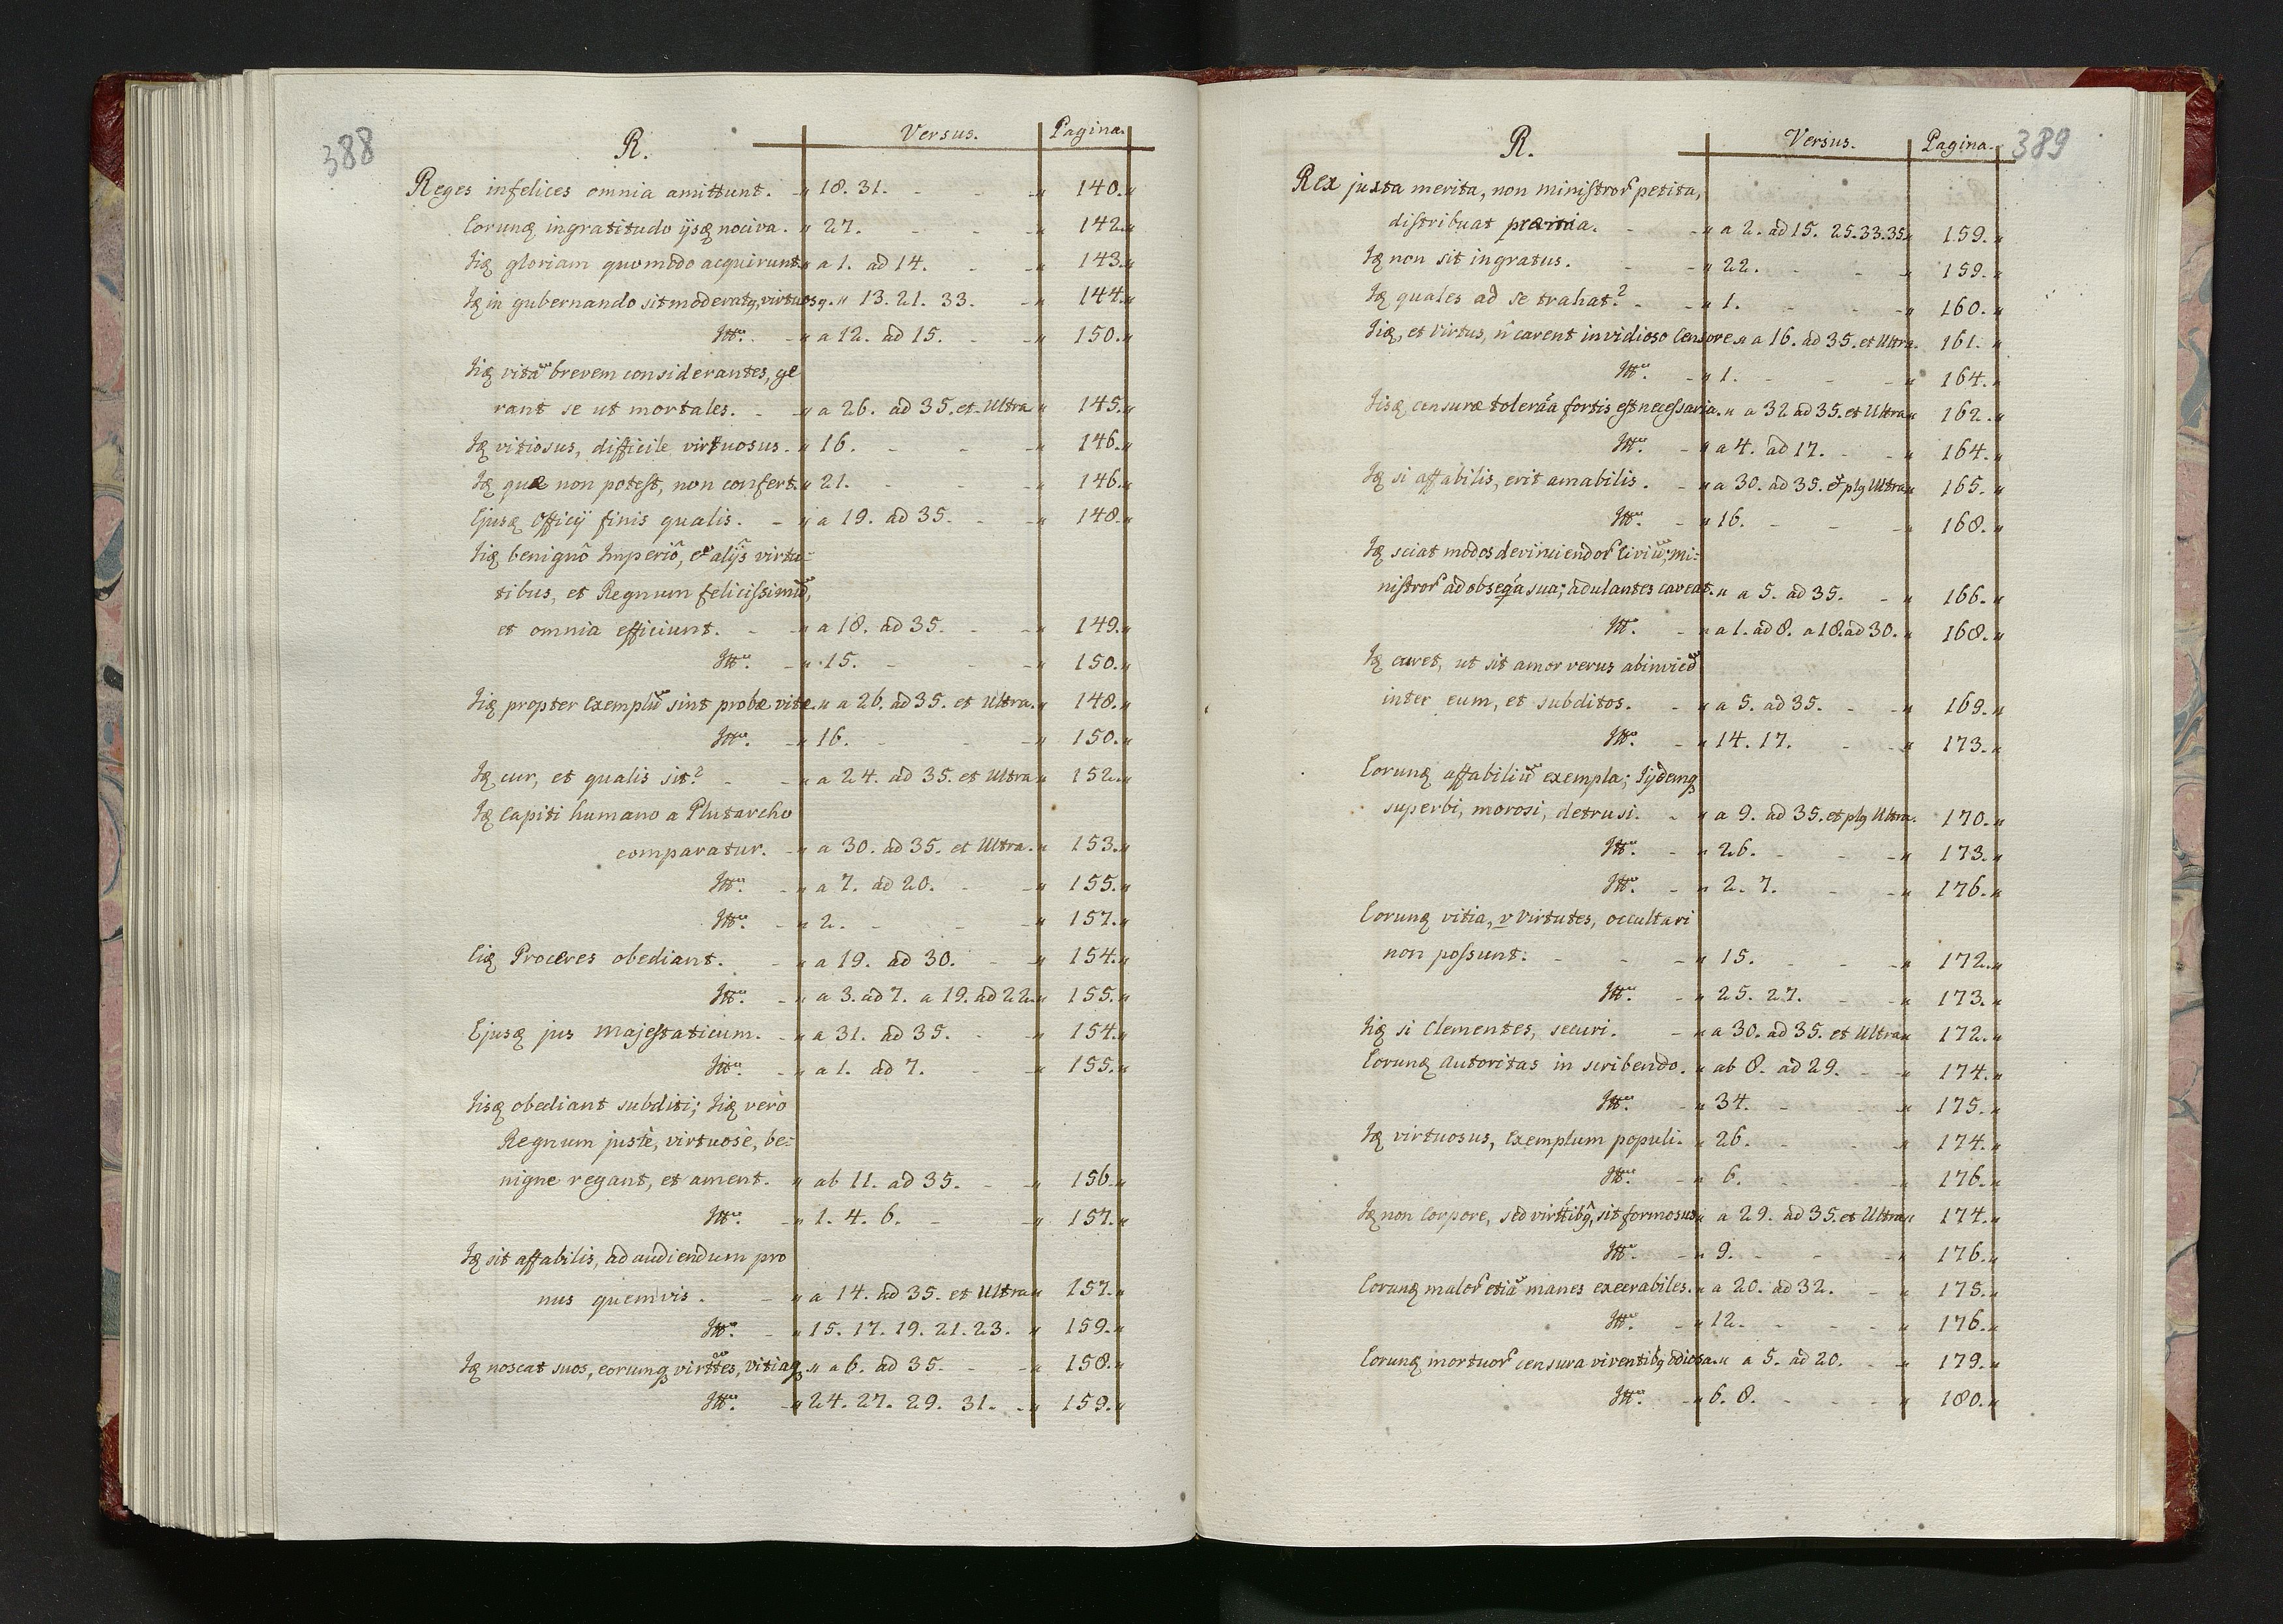 388
R. Versus. Pagina.
Reges infelices omnia amittunt. - „ 18. 31. - - - „ 140. „
Eorunq ingratitudo ijsq nociva. „ 27. - - - „ 142. „
Iiq gloriam quomodo acquirunt. „ a 1. ad 14. - - „ 143. „
Iq in gubernando sit moderatq, virtuosq. „ 13. 21. 33. - „ 144. „
Ittū. - „ a 12. ad 15. - - „ 150. „
Iiq vitā brevem considerantes, ge
rant se ut mortales. - - „ a 26. ad 35. et Ultra „ 145. „
Iq vitiosus, difficile virtuosus. - „ 16. - - - „ 146. „
Iq quæ non potest, non confert. „ 21. - - - „ 146. „
Ejusq Officij finis qualis. - - „ a 19. ad 35. - - „ 148. „
Iiq benignô Imperiô, et alijs virtu-
tibus, et Regnum felicissimū,
et omnia efficiunt. - - „ a 18. ad 35. - - „ 149. „
Ittū. - „ 15. - - - „ 150. „
Iiq propter Exemplū sint probæ vitæ. „ a 26. ad 35. et Ultra. „ 148. „
Ittū. - „ 16. - - - „ 150. „
Iq cur, et qualis sit? - - „ a 24. ad 35. et Ultra „ 152. „
Iq Capiti humano a Plutarcho
comparatur. - „ a 30. ad 35. et Ultra. „ 153. „
Ittū. - „ a 7. ad 20. - - „ 155. „
Ittū. - „ 2. - - - „ 157. „
Eiq Proceres obediant. - - „ a 19. ad 30. - - „ 154. „
Ittū. - „ a 3. ad 7. a 19. ad 22. „ 155. „
Ejusq jus Majestaticum. - „ a 31. ad 35. - - „ 154. „
Ittū. - „ a 1. ad 7. - - „ 155. „
Iisq obediant subditi; Iiq verò
Regnum justè, virtuosè, be-
nigne regant, et ament. „ ab 11. ad 35. - - „ 156. „
Ittū. - „ 1. 4. 6. - - „ 157. „
Iq sit affabilis, ad audiendum pro
nus quemvis. - - „ a 14. ad 35. et Ultra „ 157. „
Ittū. - „ 15. 17. 19. 21. 23. „ 159. „
Iq noscat suos, eorunq virttes, vitiaq. „ a 6. ad 35. - - „ 158. „
Ittū. - „ 24. 27. 29. 31. - „ 159. „
R. Versus. Pagina. 389
Rex juxta merita, non ministror petita,
distribuat præmia. - - „ a 2. ad 15. 25. 33. 35. „ 159. „
Iq non sit ingratus. - - „ 22. - - - „ 159. „
Iq quales ad se trahat? - - „ 1. - - - „ 160. „
Iiq, et Virtus, ñ carent invidioso Censore. „ a 16. ad 35. et Ultra. 161. „
Ittū. - „ 1. - - - „ 164. „
Iisq censuræ toleraã fortis est necessaria. „ a 32 ad 35. et Ultra „ 162. „
Ittū. - „ a 4. ad 17. - - „ 164. „
Iq si affabilis, erit amabilis. - „ a 30. ad 35. et plq Ultra „ 165. „
Ittū. - „ 16. - - - „ 168. „
Iq sciat modos devinciendor Civiū; mi-
nistror ad obseqa sua; adulantes caveat. „ a 5. ad 35. - „ 166. „
Ittū. - „ a 1. ad 8. a 18. ad 30. „ 168. „
Iq curet, ut sit amor verus abinvicē
inter eum, et subditos. - „ a 5. ad 35. - - „ 169. „
Ittū. - „ 14. 17. - - „ 173. „
Eorunq affabiliū exempla; Iijdemq
superbi, morosi, detrusi. - „ a 9. ad 35. et plq Ultra. 170. „
Ittū. - „ 26. - - - „ 173. „
Ittū. - „ 2. 7. - - „ 176. „
Eorunq vitia, v Virtutes, occultari
non possunt. - - - „ 15. - - - „ 172. „
Ittū. - „ 25. 27. - - „ 173. „
Iiq si Clementes, securi. - „ a 30. ad 35. et Ultra „ 172. „
Eorunq Autoritas in scribendo. „ ab 8. ad 29. - „ 174. „
Ittū. - „ 34. - - - „ 175. „
Iq virtuosus, Exemplum populi. „ 26. - - - „ 174. „
Ittū. - „ 6. - - - „ 176. „
Iq non Corpore, sed virttibq, sit formosus „ a 29. ad 35. et Ultra „ 174. „
Ittū. - „ 9. - - - „ 176. „
Eorunq malor etiā manes execrabiles. „ a 20. ad 32. - „ 175. „
Ittū. - „ 12. - - - „ 176. „
Eorunq mortuor censura viventibq odiosa. „ a 5. ad 20. - „ 179. „
Ittū. - „ 6. 8. - - - „ 180. „